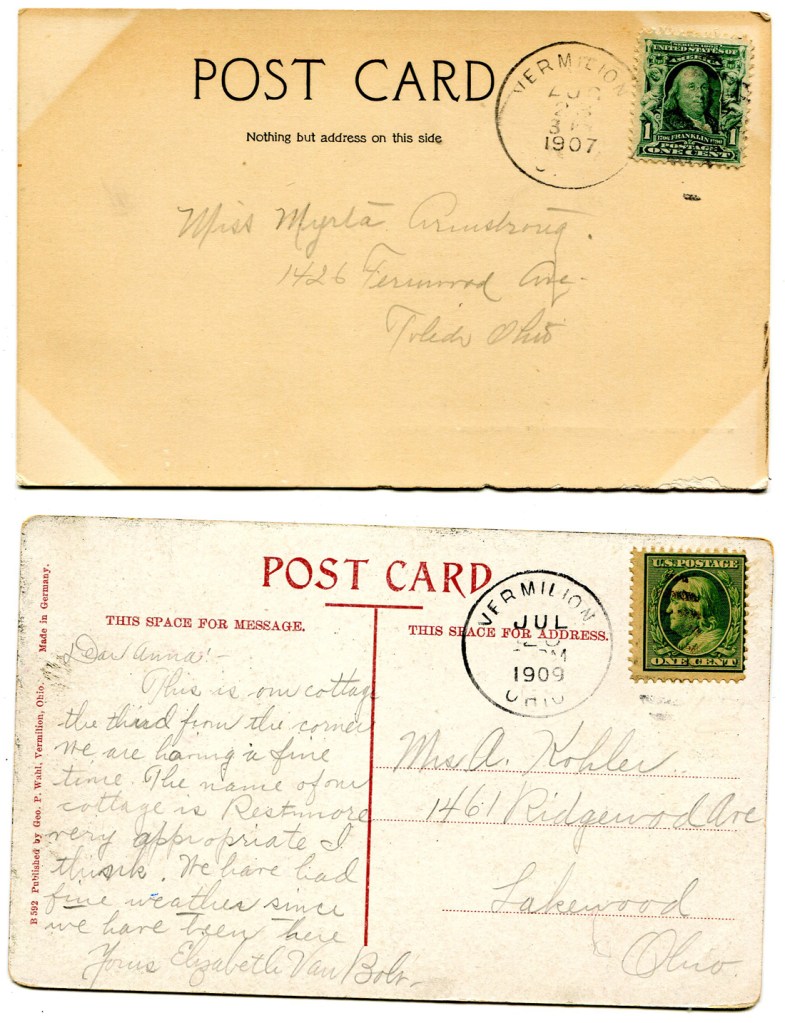 POST CARD
Nothing but address on this side
VERMILION
AUG
1907
SERIES 1902
UNITED STATES OF
AMERICA
1 FRANKLIN 1
POSTAGE
ONE CENT
Miss Myrta Armstrong.
1426 Fernwood Ave.
Toledo Ohio
POST CARD
THIS SPACE FOR MESSAGE.
THIS SPACE FOR ADDRESS.
VERMILION
JUL
1909
OHIO
U.S. POSTAGE
ONE CENT
B 592 Published by Geo. P. Wahl, Vermilion, Ohio. Made in Germany.
Dear Anna:-
This is our cottage
the third from the corner
We are having a fine
time. The name of our
cottage is Restmore
very appropriate I
think. We have had
fine weather since
we have been here
Yours Elizabeth Van
Mrs A. Kohler.
1461 Ridgewood Ave
Lakewood
Ohio.